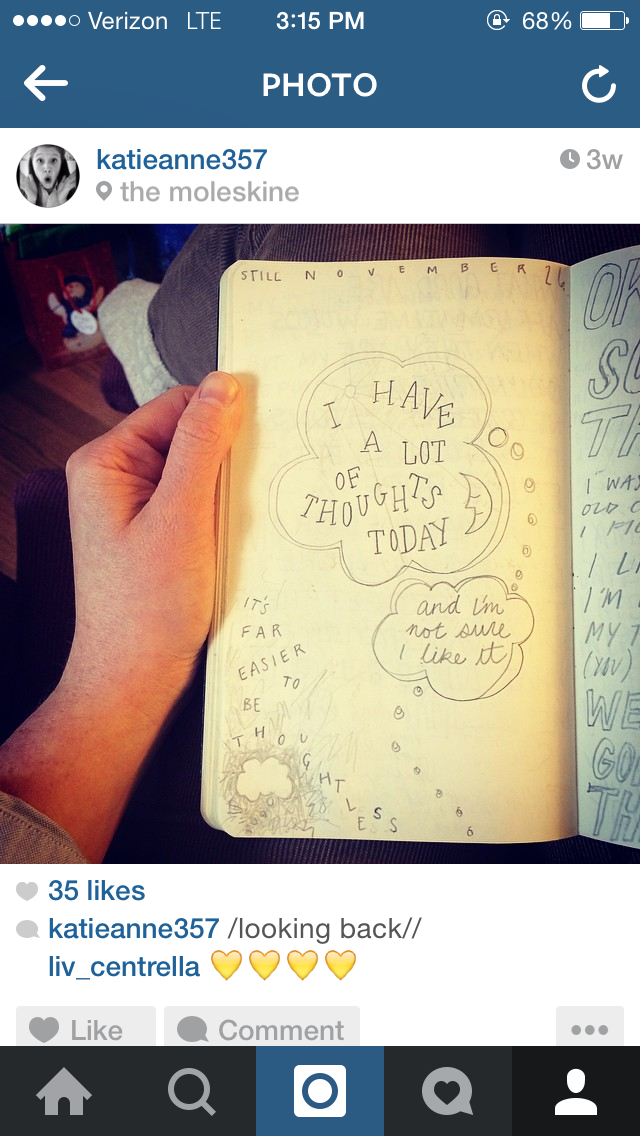 Verizon LTE 3:15 PM 68%
PHOTO
katieanne357 3w
the moleskine
STILL NOVEMBER 26
I HAVE
A LOT
OF
THOUGHTS
TODAY
and i'm
not sure
i like it
IT'S
FAR
EASIER
TO
BE
THOUGHTLESS
OK
SO
TH
I WAS
OLD
I
I LI
I'M
MY T
(YOU)
WE
GO
TH
35 likes
katieanne357 /looking back//
liv_centrella 💛💛💛💛
Like Comment •••